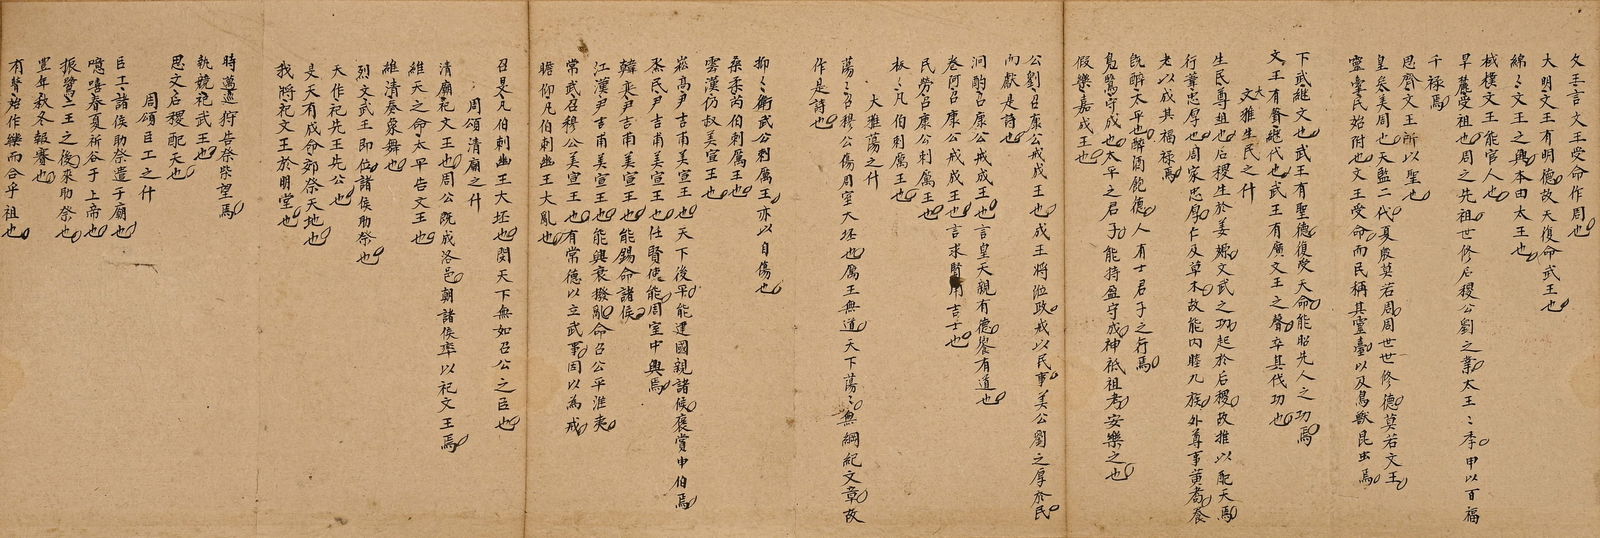 文王言文王受命作周也
大明文王有明德故天復命武王也
綿〻文王之興本由太王也
棫樸文王能官人也
旱麓受祖也周之先祖世修后稷公劉之業太王〻季甲以百福
千祿焉
思齊文王所以聖也
皇矣美周也天監二代夏殷莫若周周世世修德莫若文王
靈臺民始附也文王受命而民稱其靈臺以及鳥獸昆虫焉
下武繼文也武王有聖德復受天命能昭先人之功焉
文王有聲繼伐也武王有廣文王之聲卒其伐功也
文大雅生民之什
生民尊祖也后稷生於姜嫄文武之功起於后稷故推以配天焉
行葦忠厚也周家忠厚仁及草木故能內睦九族外尊事黃耇養
老以成其福祿焉
既醉太平也醉酒飽德人有士君子之行焉
鳧鷖守成也太平之君子能持盈守成神祇祖考安樂之也
假樂嘉成王也
公劉召康公戒成王也成王將涖政戒以民事美公劉之厚於民
而獻是詩也
泂酌召康公戒成王也言皇天親有德饗有道也
卷阿召康公戒成王也言求賢用吉士也
民勞召康公刺厲王也
板〻凡伯刺厲王也
大雅蕩之什
蕩〻召穆公傷周室大坯也厲王無道天下蕩〻無綱紀文章故
作是詩也
抑〻衛武公刺厲王亦以自傷也
桑柔芮伯刺厲王也
雲漢仍叔美宣王也
崧高尹吉甫美宣王也天下復平能建國親諸侯褒賞申伯焉
烝民尹吉甫美宣王也任賢使能周室中興焉
韓奕尹吉甫美宣王也能錫命諸侯
江漢尹吉甫美宣王也能興衰撥亂命召公平淮夷
常武召穆公美宣王也有常德以立武事因以為戒
瞻仰凡伯刺幽王大亂也
召旻凡伯刺幽王大坯也閔天下無如召公之臣也
周頌清廟之什
清廟祀文王也周公既成洛邑朝諸侯率以祀文王焉
維天之命太平告文王也
維清奏象舞也
烈文武王即位諸侯助祭也
天作祀先王先公也
昊天有成命郊祭天地也
我將祀文王於明堂也
時邁巡狩告祭柴望焉
執競祀武王也
思文后稷配天也
周頌臣工之什
臣工諸侯助祭遣于廟也
噫嘻春夏祈谷于上帝也
振鷺二王之後來助祭也
豐年秋冬報賽也
有瞽始作樂而合乎祖也